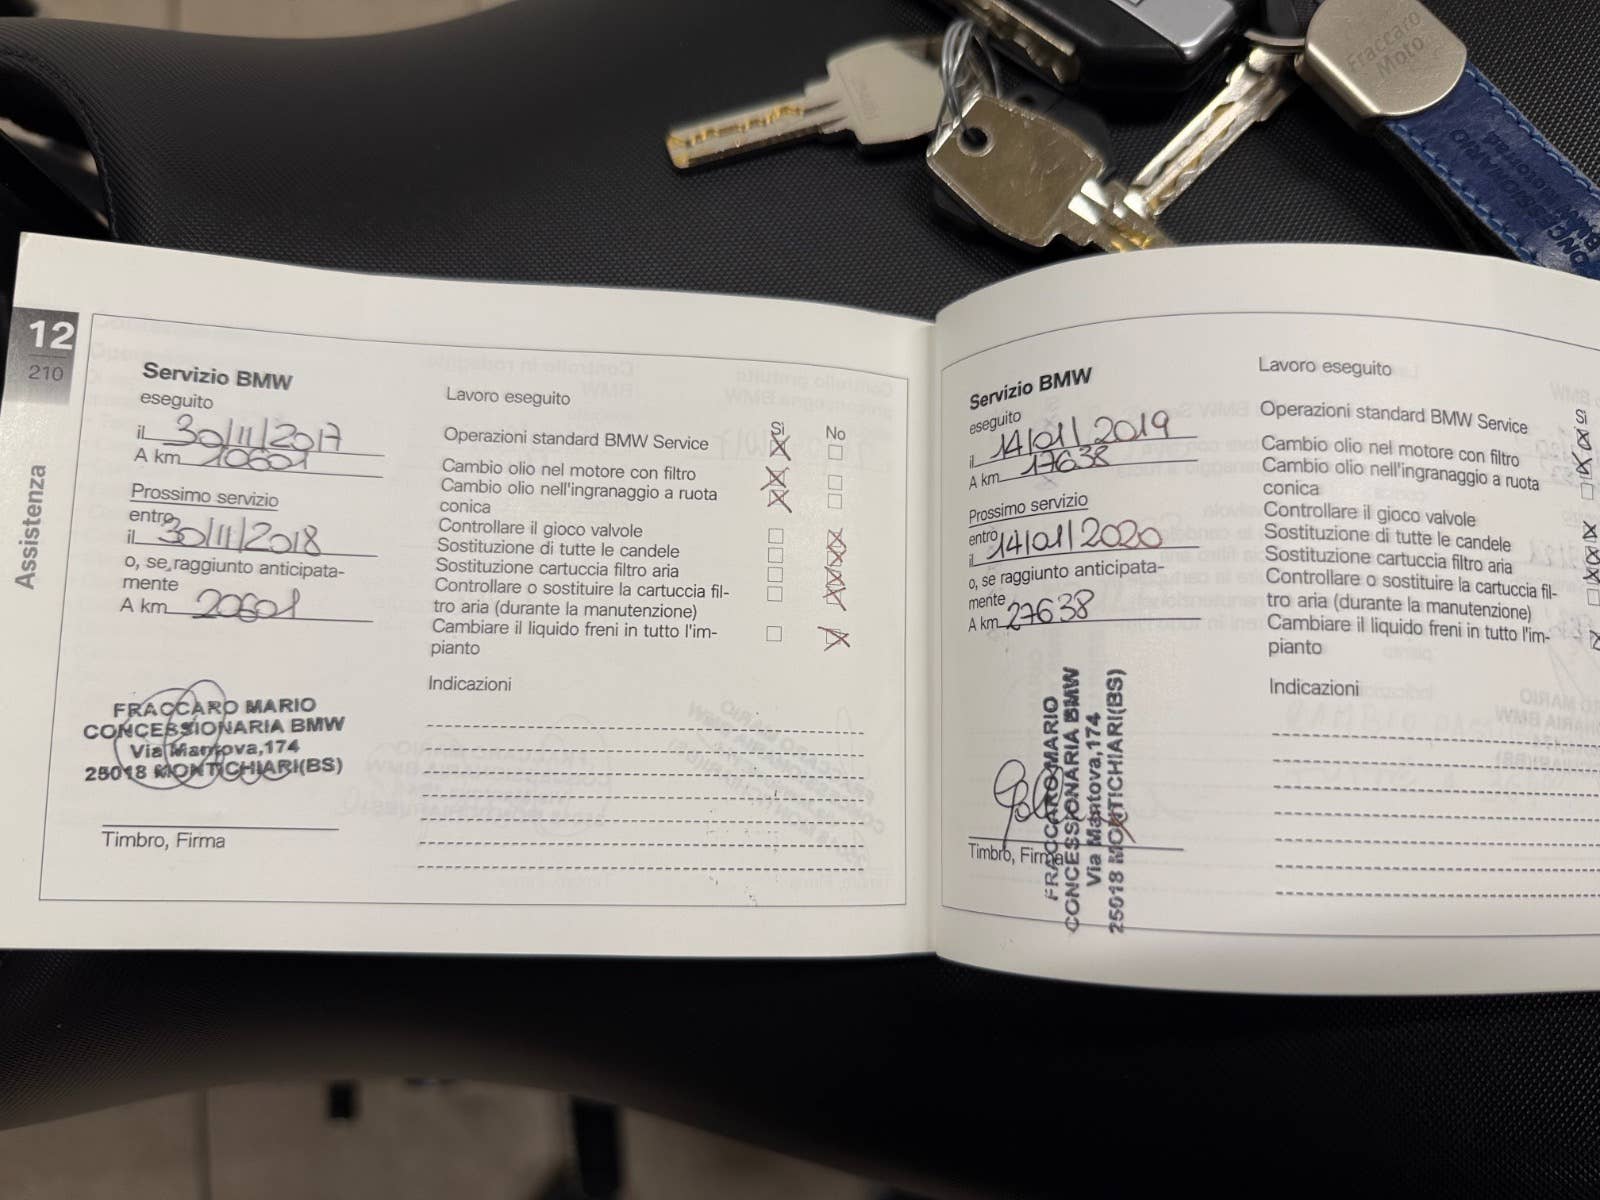 Fraccaro
Moto
12
210
Assistenza
Servizio BMW
eseguito
il 30/11/2017
A km 10601
Prossimo servizio
entro
il 30/11/2018
o, se raggiunto anticipata-
mente
A km 20601
FRACCARO MARIO
CONCESSIONARIA BMW
Via Mantova,174
25018 MONTICHIARI(BS)
Timbro, Firma
Lavoro eseguito
Sì No
Operazioni standard BMW Service
Cambio olio nel motore con filtro
Cambio olio nell'ingranaggio a ruota
conica
Controllare il gioco valvole
Sostituzione di tutte le candele
Sostituzione cartuccia filtro aria
Controllare o sostituire la cartuccia fil-
tro aria (durante la manutenzione)
Cambiare il liquido freni in tutto l'im-
pianto
Indicazioni
Servizio BMW
eseguito
il 14/01/2019
A km 17638
Prossimo servizio
entro
il 14/01/2020
o, se raggiunto anticipata-
mente
A km 27638
FRACCARO MARIO
CONCESSIONARIA BMW
Via Mantova,174
25018 MONTICHIARI(BS)
Timbro, Firma
Lavoro eseguito
Sì
Operazioni standard BMW Service
Cambio olio nel motore con filtro
Cambio olio nell'ingranaggio a ruota
conica
Controllare il gioco valvole
Sostituzione di tutte le candele
Sostituzione cartuccia filtro aria
Controllare o sostituire la cartuccia fil-
tro aria (durante la manutenzione)
Cambiare il liquido freni in tutto l'im-
pianto
Indicazioni